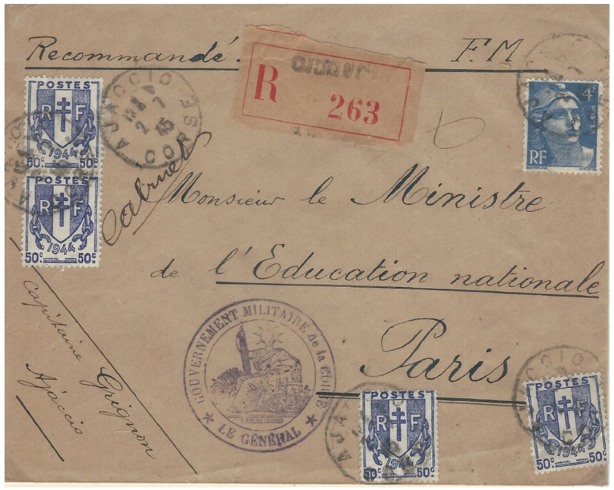 Recommandé. F.M
POSTES
RF
1944
50c 50c
POSTES
RF
1944
50c 50c
AJACCIO
2 7
45
CORSE
AJACCIO
R 263
4F
RF
Cabinet
Monsieur le Ministre
de l'Education nationale
Paris
Capitaine Grignon
Ajaccio
GOUVERNEMENT MILITAIRE de la CORSE
★ LE GÉNÉRAL ★
POSTES
RF
1944
50c 50c
POSTES
RF
1944
50c 50c